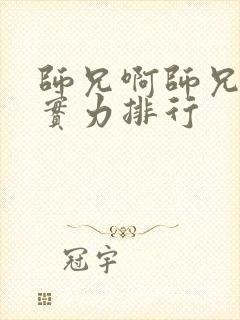 師兄啊師兄
實力排行
冠宇